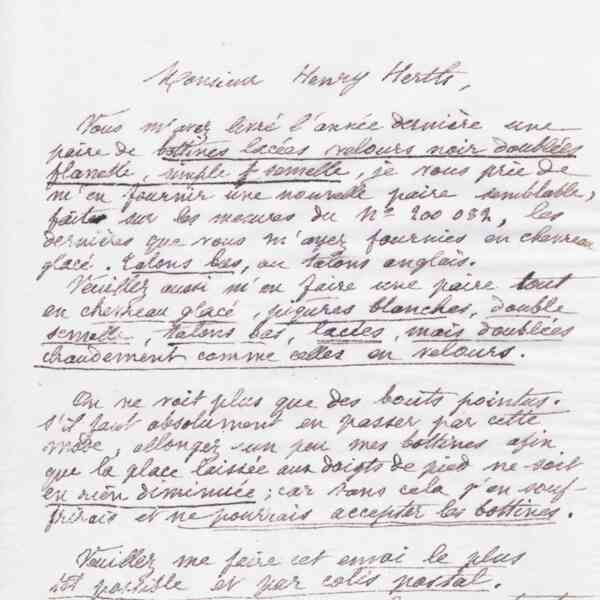 Monsieur Henry Herths,
Vous m'avez livré l'année dernière une
paire de bottines lacées velours noir doublées
flanelle, simple semelle, je vous prie de
m'en fournir une nouvelle paire semblable,
faite sur les mesures du N° 200 032, les
dernières que vous m'ayez fournies en chevreau
glacé. Talons bas, ou talons anglais.
Veuillez aussi m'en faire une paire tout
en chevreau glacé, piqures blanches, double
semelle, talons bas, lacées, mais doublées
chaudement comme celles en velours.
On ne voit plus que des bouts pointus.
S'il faut absolument en passer par cette
mode, allongez un peu mes bottines afin
que la place laissée aux doigts de pied ne soit
en rien diminuée; car sans cela j'en souf-
frirais et ne pourrais accepter les bottines.
Veuillez me faire cet envoi le plus
tôt possible et par colis postal.